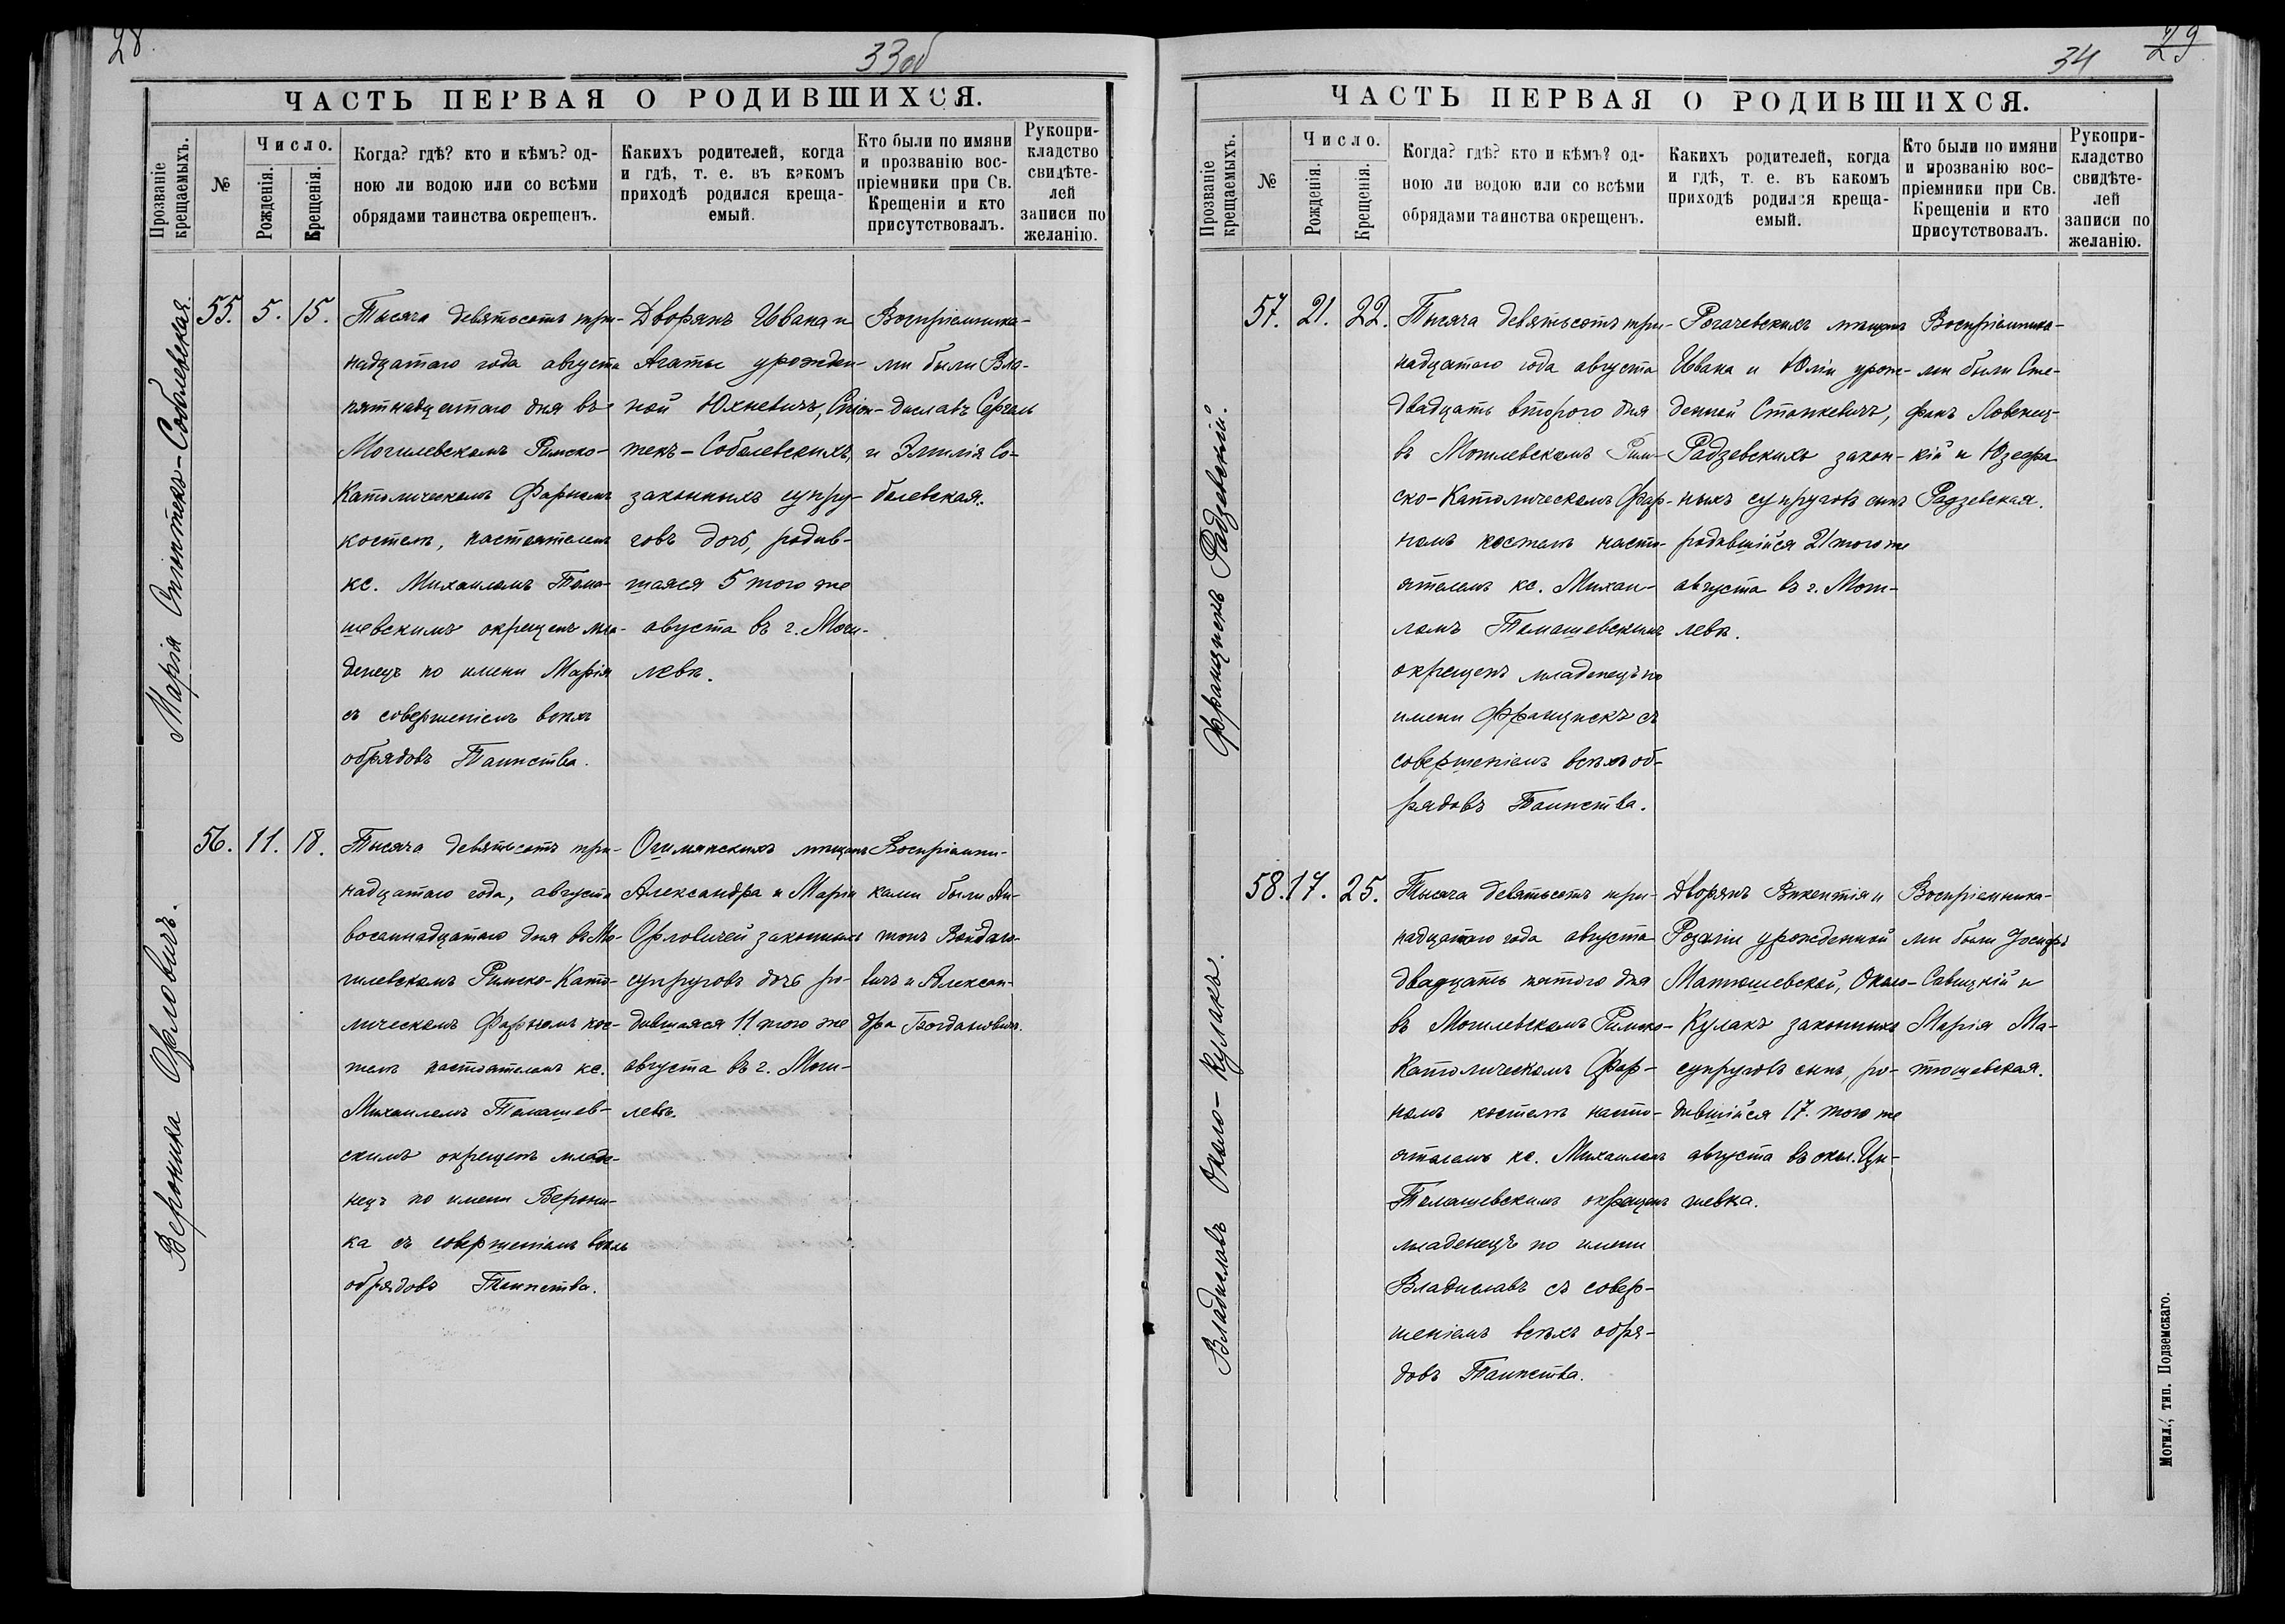 28.
33об
ЧАСТЬ ПЕРВАЯ О РОДИВШИХСЯ.
Прозваніе крещаемыхъ.
№
Число.
Рожденія.
Крещенія.
Когда? гдѣ? кто и кѣмъ? од-
ною ли водою или со всѣми
обрядами таинства окрещенъ.
Какихъ родителей, когда
и гдѣ, т. е. въ какомъ
приходѣ родился креща-
емый.
Кто были по имяни
и прозванію вос-
пріемники при Св.
Крещеніи и кто
присутствовалъ.
Рукопри-
кладство
свидѣте-
лей
записи по
желанію.
Марія Спіонтекъ-Соболевская.
55. 5. 15.
Тысяча девятьсотъ три-
надцатаго года августа
пятнадцатаго дня въ
Могилевскомъ Римско-
Католическомъ Фарномъ
костелѣ, настоятелемъ
кс. Михаиломъ Тома-
шевскимъ окрещенъ мла-
денецъ по имени Марія
съ совершеніемъ всѣхъ
обрядовъ Таинства.
Дворянъ Ивана и
Агаты урожден-
ной Юхневичъ, Спіон-
текъ-Соболевскихъ,
законныхъ супру-
говъ дочь, родив-
шаяся 5 того же
августа въ г. Моги-
левѣ.
Воспріемника-
ми были Вла-
диславъ Сергель
и Эмилія Со-
болевская.
Вероника Орловичъ.
56. 11. 18.
Тысяча девятьсотъ три-
надцатаго года, августа
восемнадцатаго дня въ Мо-
гилевскомъ Римско-Като-
лическомъ Фарномъ кос-
телѣ настоятелемъ кс.
Михаиломъ Томашев-
скимъ окрещенъ младе-
нецъ по имени Верони-
ка съ совершеніемъ всѣхъ
обрядовъ Таинства.
Ошмянскихъ мѣщанъ
Александра и Маріи
Орловичей законныхъ
супруговъ дочь ро-
дившаяся 11 того же
августа въ г. Моги-
левѣ.
Воспріемни-
ками были Ан-
тонъ Войдаго-
вичъ и Алексан-
дра Богдановичъ.
34
29
ЧАСТЬ ПЕРВАЯ О РОДИВШИХСЯ.
Прозваніе крещаемыхъ.
№
Число.
Рожденія.
Крещенія.
Когда? гдѣ? кто и кѣмъ? од-
ною ли водою или со всѣми
обрядами таинства окрещенъ.
Какихъ родителей, когда
и гдѣ, т. е. въ какомъ
приходѣ родился креща-
емый.
Кто были по имяни
и прозванію вос-
пріемники при Св.
Крещеніи и кто
присутствовалъ.
Рукопри-
кладство
свидѣте-
лей
записи по
желанію.
Францискъ Радзевскій.
57. 21. 22.
Тысяча девятьсотъ три-
надцатаго года августа
двадцать второго дня
въ Могилевскомъ Рим-
ско-Католическомъ Фар-
номъ костелѣ насто-
ятелемъ кс. Михаи-
ломъ Томашевскимъ
окрещенъ младенецъ по
имени Францискъ съ
совершеніемъ всѣхъ об-
рядовъ Таинства.
Рогачевскихъ мѣщанъ
Ивана и Юліи урож-
денной Станкевичъ,
Радзевскихъ закон-
ныхъ супруговъ сынъ
родившійся 21 того же
августа въ г. Моги-
левѣ.
Воспріемника-
ми были Сте-
фанъ Ловениц-
кій и Юзефа
Радзевская.
Владиславъ Около-Кулакъ.
58. 17. 25.
Тысяча девятьсотъ три-
надцатаго года августа
двадцать пятого дня
въ Могилевскомъ Римско-
Католическомъ Фар-
номъ костелѣ насто-
ятелемъ кс. Михаиломъ
Томашевскимъ окрещенъ
младенецъ по имени
Владиславъ съ совер-
шеніемъ всѣхъ обря-
довъ Таинства.
Дворянъ Викентія и
Розаліи урожденной
Матюшевской, Около-
Кулакъ законныхъ
супруговъ сынъ, ро-
дившійся 17. того же
августа въ окол. Ци-
шевка.
Воспріемника-
ми были Іосифъ
Савицкій и
Марія Ма-
тюшевская.
Могил., тип. Подземскаго.